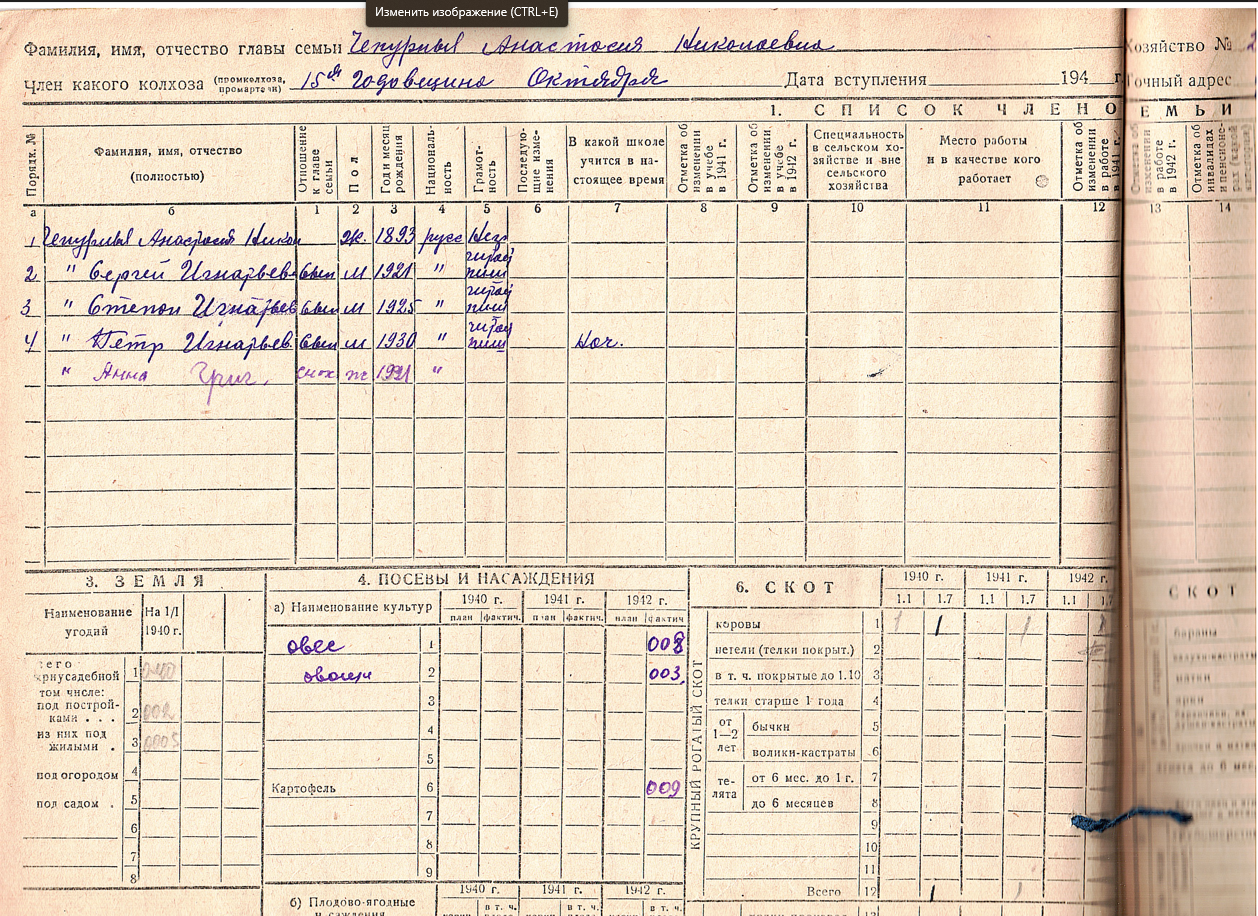 Изменить изображение (CTRL+E)
Фамилия, имя, отчество главы семьи Чепурныя Анастасия Николаевна
Хозяйство №
Член какого колхоза (промколхоза, промартели) 15ая Годовщина Октября Дата вступления 194 г.
Точный адрес
1. СПИСОК ЧЛЕНО
ЕМЬИ
Порядк. № Фамилия, имя, отчество (полностью) Отношение к главе семьи Пол Год и месяц рождения Националь-ность Грамот-ность Последую-щие изме-нения В какой школе учится в на-стоящее время Отметка об изменении в учебе в 1941 г. Отметка об изменении в учебе в 1942 г. Специальность в сельском хо-зяйстве и вне сельского хозяйства Место работы и в качестве кого работает Отметка об изменении в работе в 1941 г. Отметка об изменении в работе в 1942 г. Отметка об инвалидах и пенсионе-рах
а б 1 2 3 4 5 6 7 8 9 10 11 12 13 14
1 Чепурныя Анастасия Никол ж. 1893 русс Негр
2 " Сергей Игнатьев сын м 1921 " читает пиш
3 " Степан Игнатьев сын м 1925 " читает пиш
4 " Пётр Игнатьев. сын м 1930 " читает пиш Нач.
" Анна Григ. снох ж 1921 "
3. ЗЕМЛЯ
Наименование угодий На 1/I 1940 г.
всего приусадебной 1
том числе:
под построй-ками . . . 2 002
из них под жилыми . 3 0003
под огородом 4
под садом . 5
6
7
8
4. ПОСЕВЫ И НАСАЖДЕНИЯ
а) Наименование культур 1940 г. 1941 г. 1942 г.
план фактич. план фактич. план фактич
овес 1 008
овощи 2 003
3
4
5
Картофель 6 009
7
8
9
1940 г. 1941 г. 1942 г.
б) Плодово-ягодные
в т. ч. в т. ч. в т. ч.
насаждения
6. СКОТ
1940 г. 1941 г. 1942 г.
1.1 1.7 1.1 1.7 1.1 1.7
КРУПНЫЙ РОГАТЫЙ СКОТ
коровы 1 1 1 1 1
нетели (телки покрыт.) 2
в т. ч. покрытые до 1.10 3
телки старше 1 года 4
от 1—2 лет бычки 5
волики-кастраты 6
те-лята от 6 мес. до 1 г. 7
до 6 месяцев 8
9
10
11
Всего 12 1 1
13
СКОТ
бараны
матки
ярки